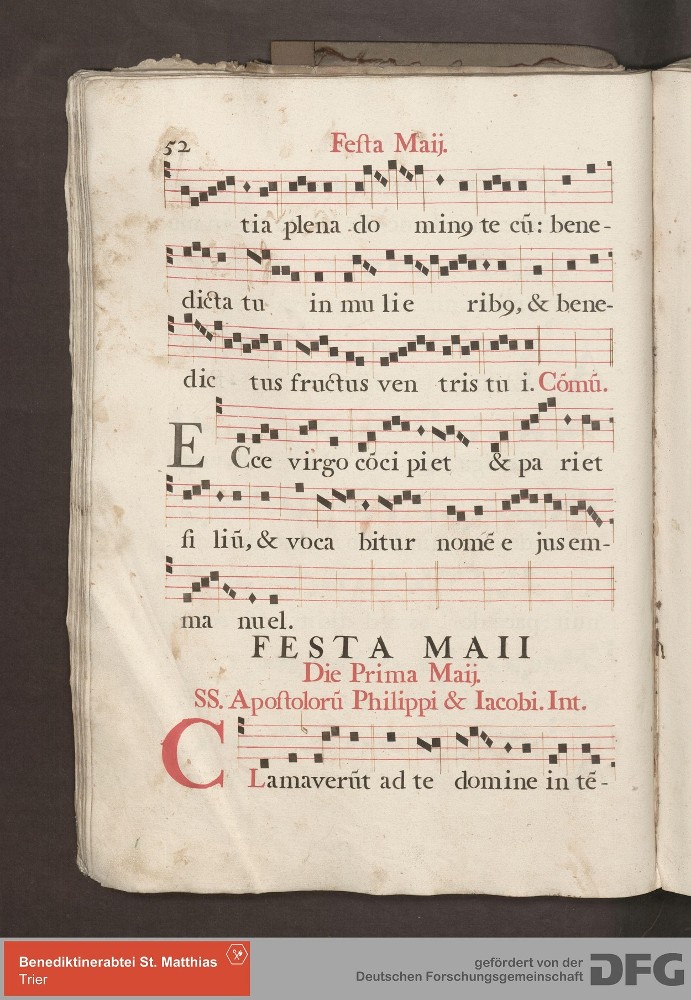 52
Festa Maij.
tia plena do min9 te cũ: bene-
dicta tu in mu lie rib9, & bene-
dic tus fructus ven tris tu i. Cõmũ.
E Cce virgo cõci pi et & pa riet
fi liũ, & voca bitur nomẽ e jus em-
ma nuel.
FESTA MAII
Die Prima Maij.
SS. Apostolorũ Philippi & Iacobi. Int.
C Lamaverũt ad te domine in tẽ-
Benediktinerabtei St. Matthias
Trier
gefördert von der
Deutschen Forschungsgemeinschaft
DFG